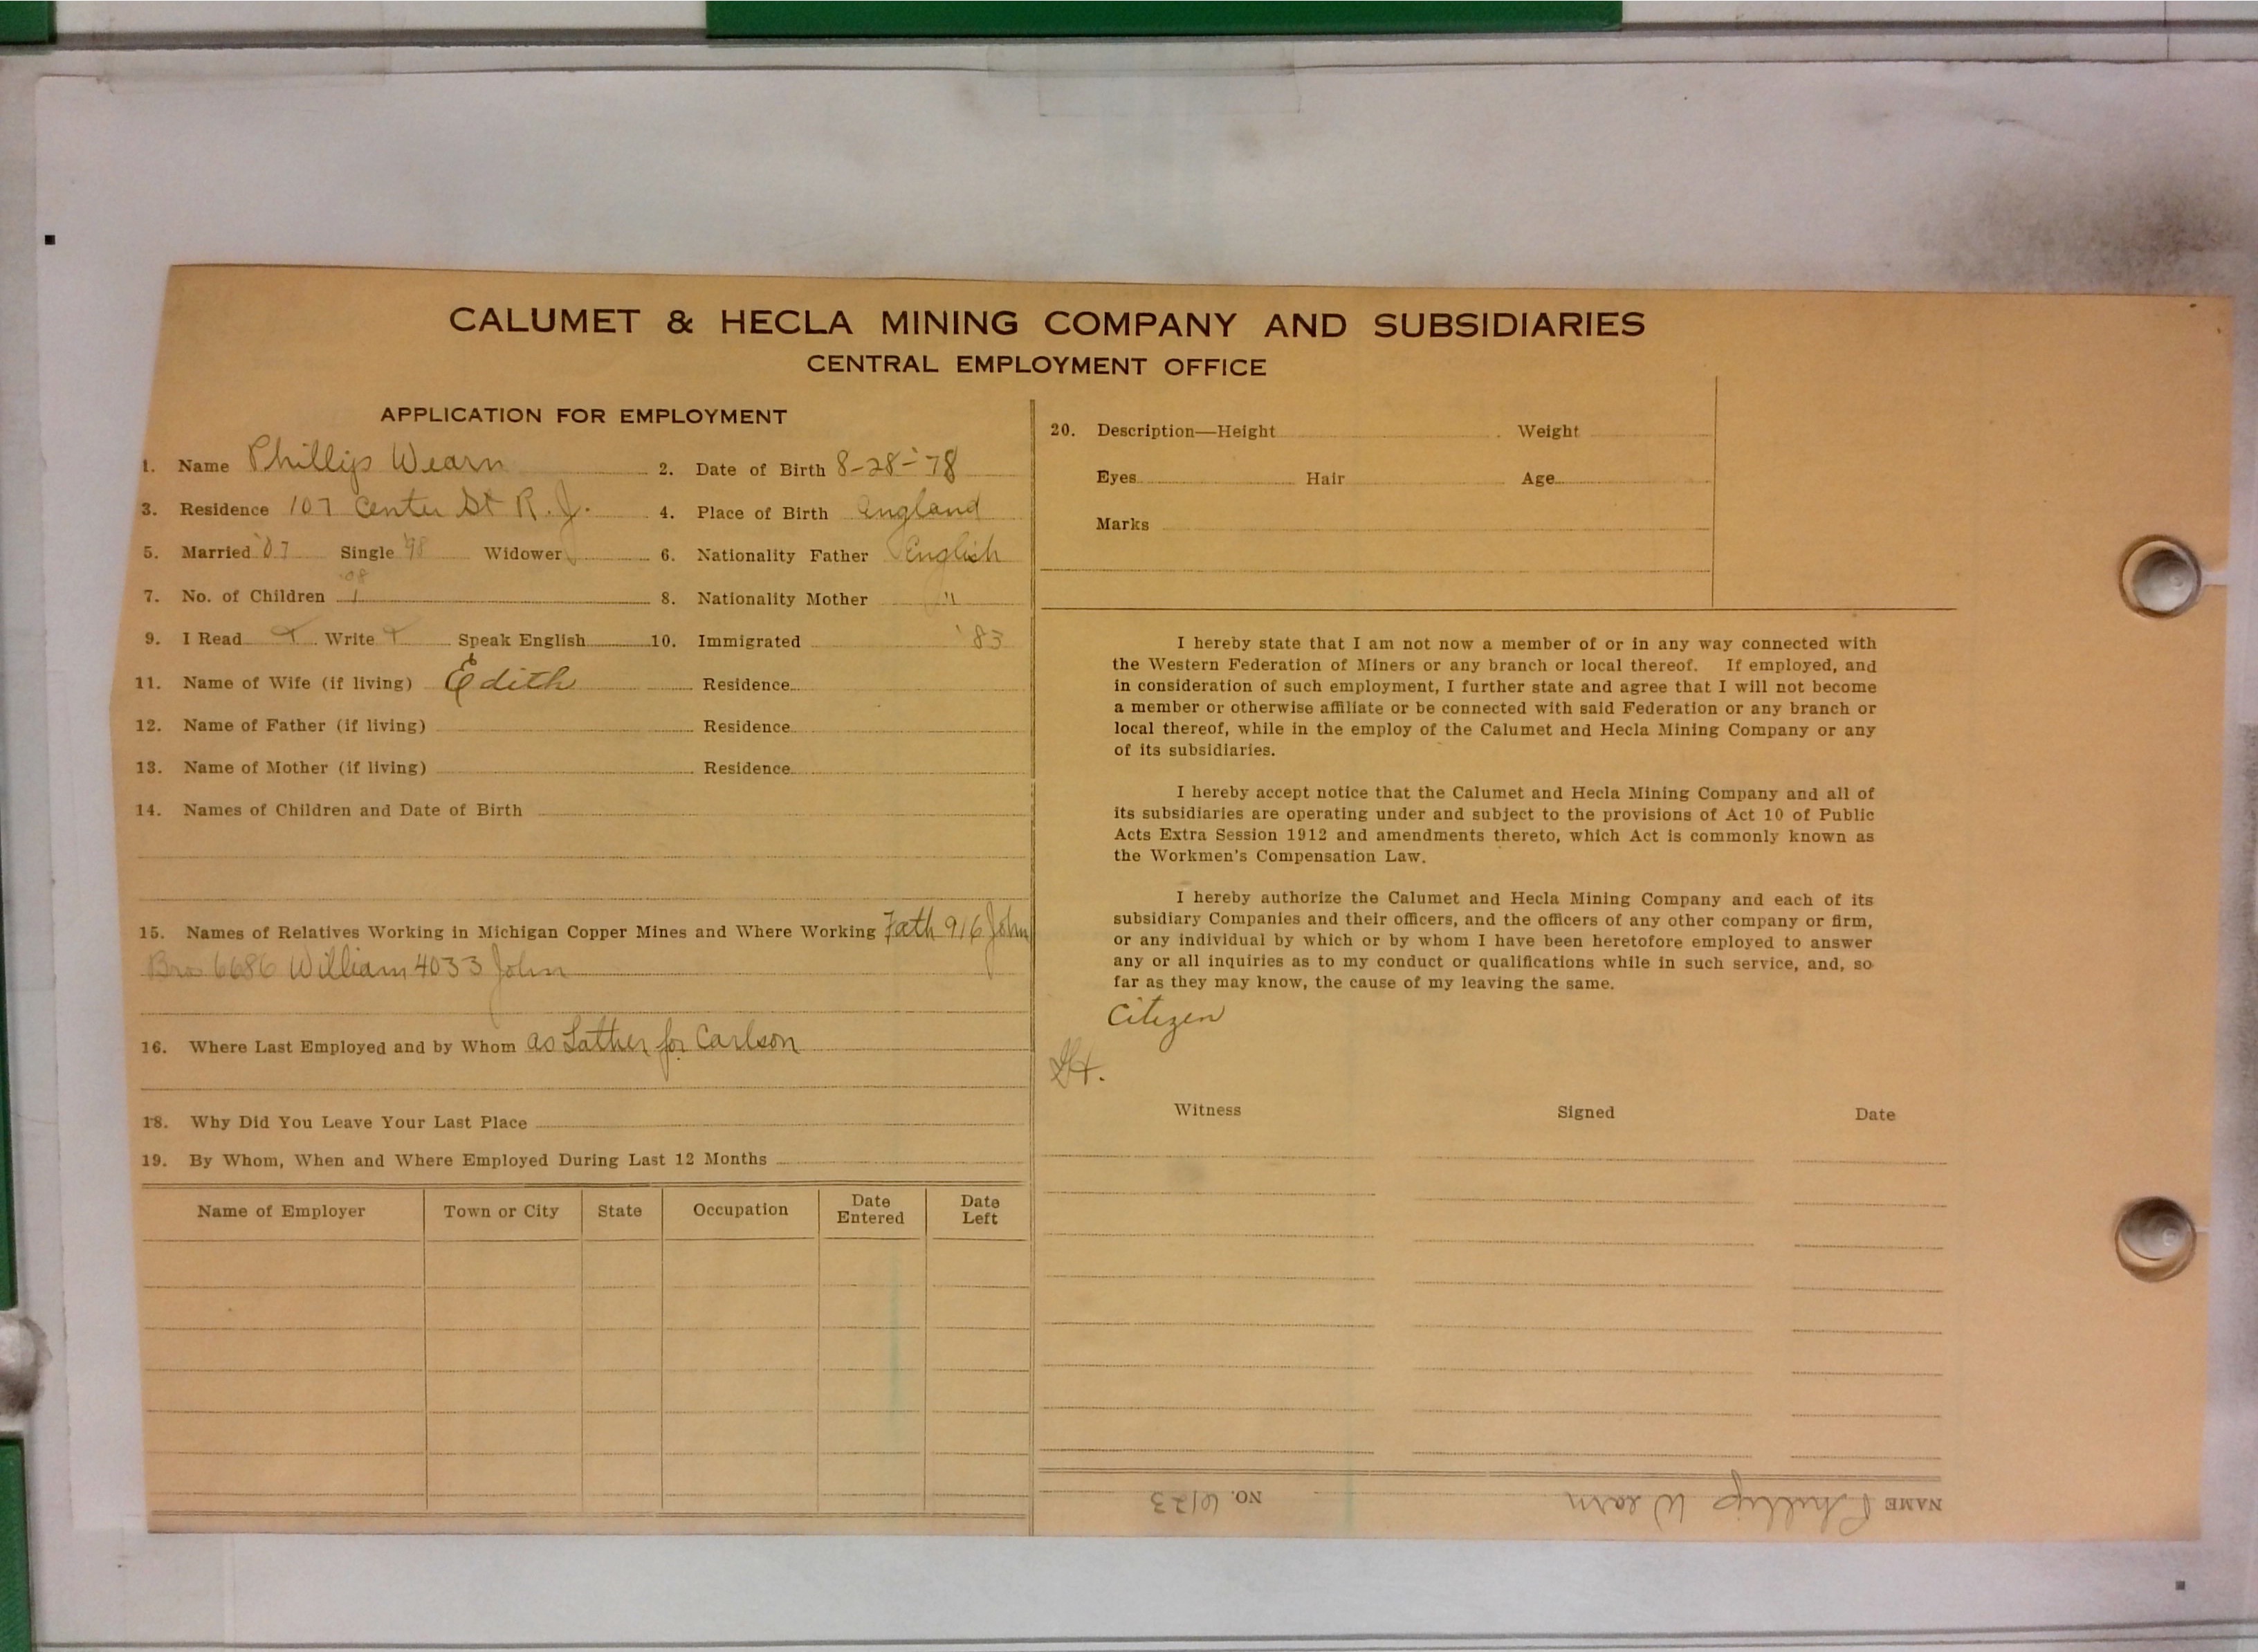 CALUMET & HECLA MINING COMPANY AND SUBSIDIARIES
CENTRAL EMPLOYMENT OFFICE
APPLICATION FOR EMPLOYMENT
1. Name Phillip Wearn 2. Date of Birth 8-28-'78
3. Residence 107 Center St R.J. 4. Place of Birth England
5. Married '07 Single '98 Widower 6. Nationality Father English
'08
7. No. of Children 1 8. Nationality Mother "
9. I Read Write Speak English 10. Immigrated '83
11. Name of Wife (if living) Edith Residence
12. Name of Father (if living) Residence
13. Name of Mother (if living) Residence
14. Names of Children and Date of Birth
15. Names of Relatives Working in Michigan Copper Mines and Where Working Fath 916 John
Bros 6686 William 4033 John
16. Where Last Employed and by Whom as Lather for Carlson
18. Why Did You Leave Your Last Place
19. By Whom, When and Where Employed During Last 12 Months
Name of Employer Town or City State Occupation Date Entered Date Left
20. Description—Height Weight
Eyes Hair Age
Marks
I hereby state that I am not now a member of or in any way connected with
the Western Federation of Miners or any branch or local thereof. If employed, and
in consideration of such employment, I further state and agree that I will not become
a member or otherwise affiliate or be connected with said Federation or any branch or
local thereof, while in the employ of the Calumet and Hecla Mining Company or any
of its subsidiaries.
I hereby accept notice that the Calumet and Hecla Mining Company and all of
its subsidiaries are operating under and subject to the provisions of Act 10 of Public
Acts Extra Session 1912 and amendments thereto, which Act is commonly known as
the Workmen's Compensation Law.
I hereby authorize the Calumet and Hecla Mining Company and each of its
subsidiary Companies and their officers, and the officers of any other company or firm,
or any individual by which or by whom I have been heretofore employed to answer
any or all inquiries as to my conduct or qualifications while in such service, and, so
far as they may know, the cause of my leaving the same.
Citizen
Witness Signed Date
NAME Phillip Wearn NO. 6123